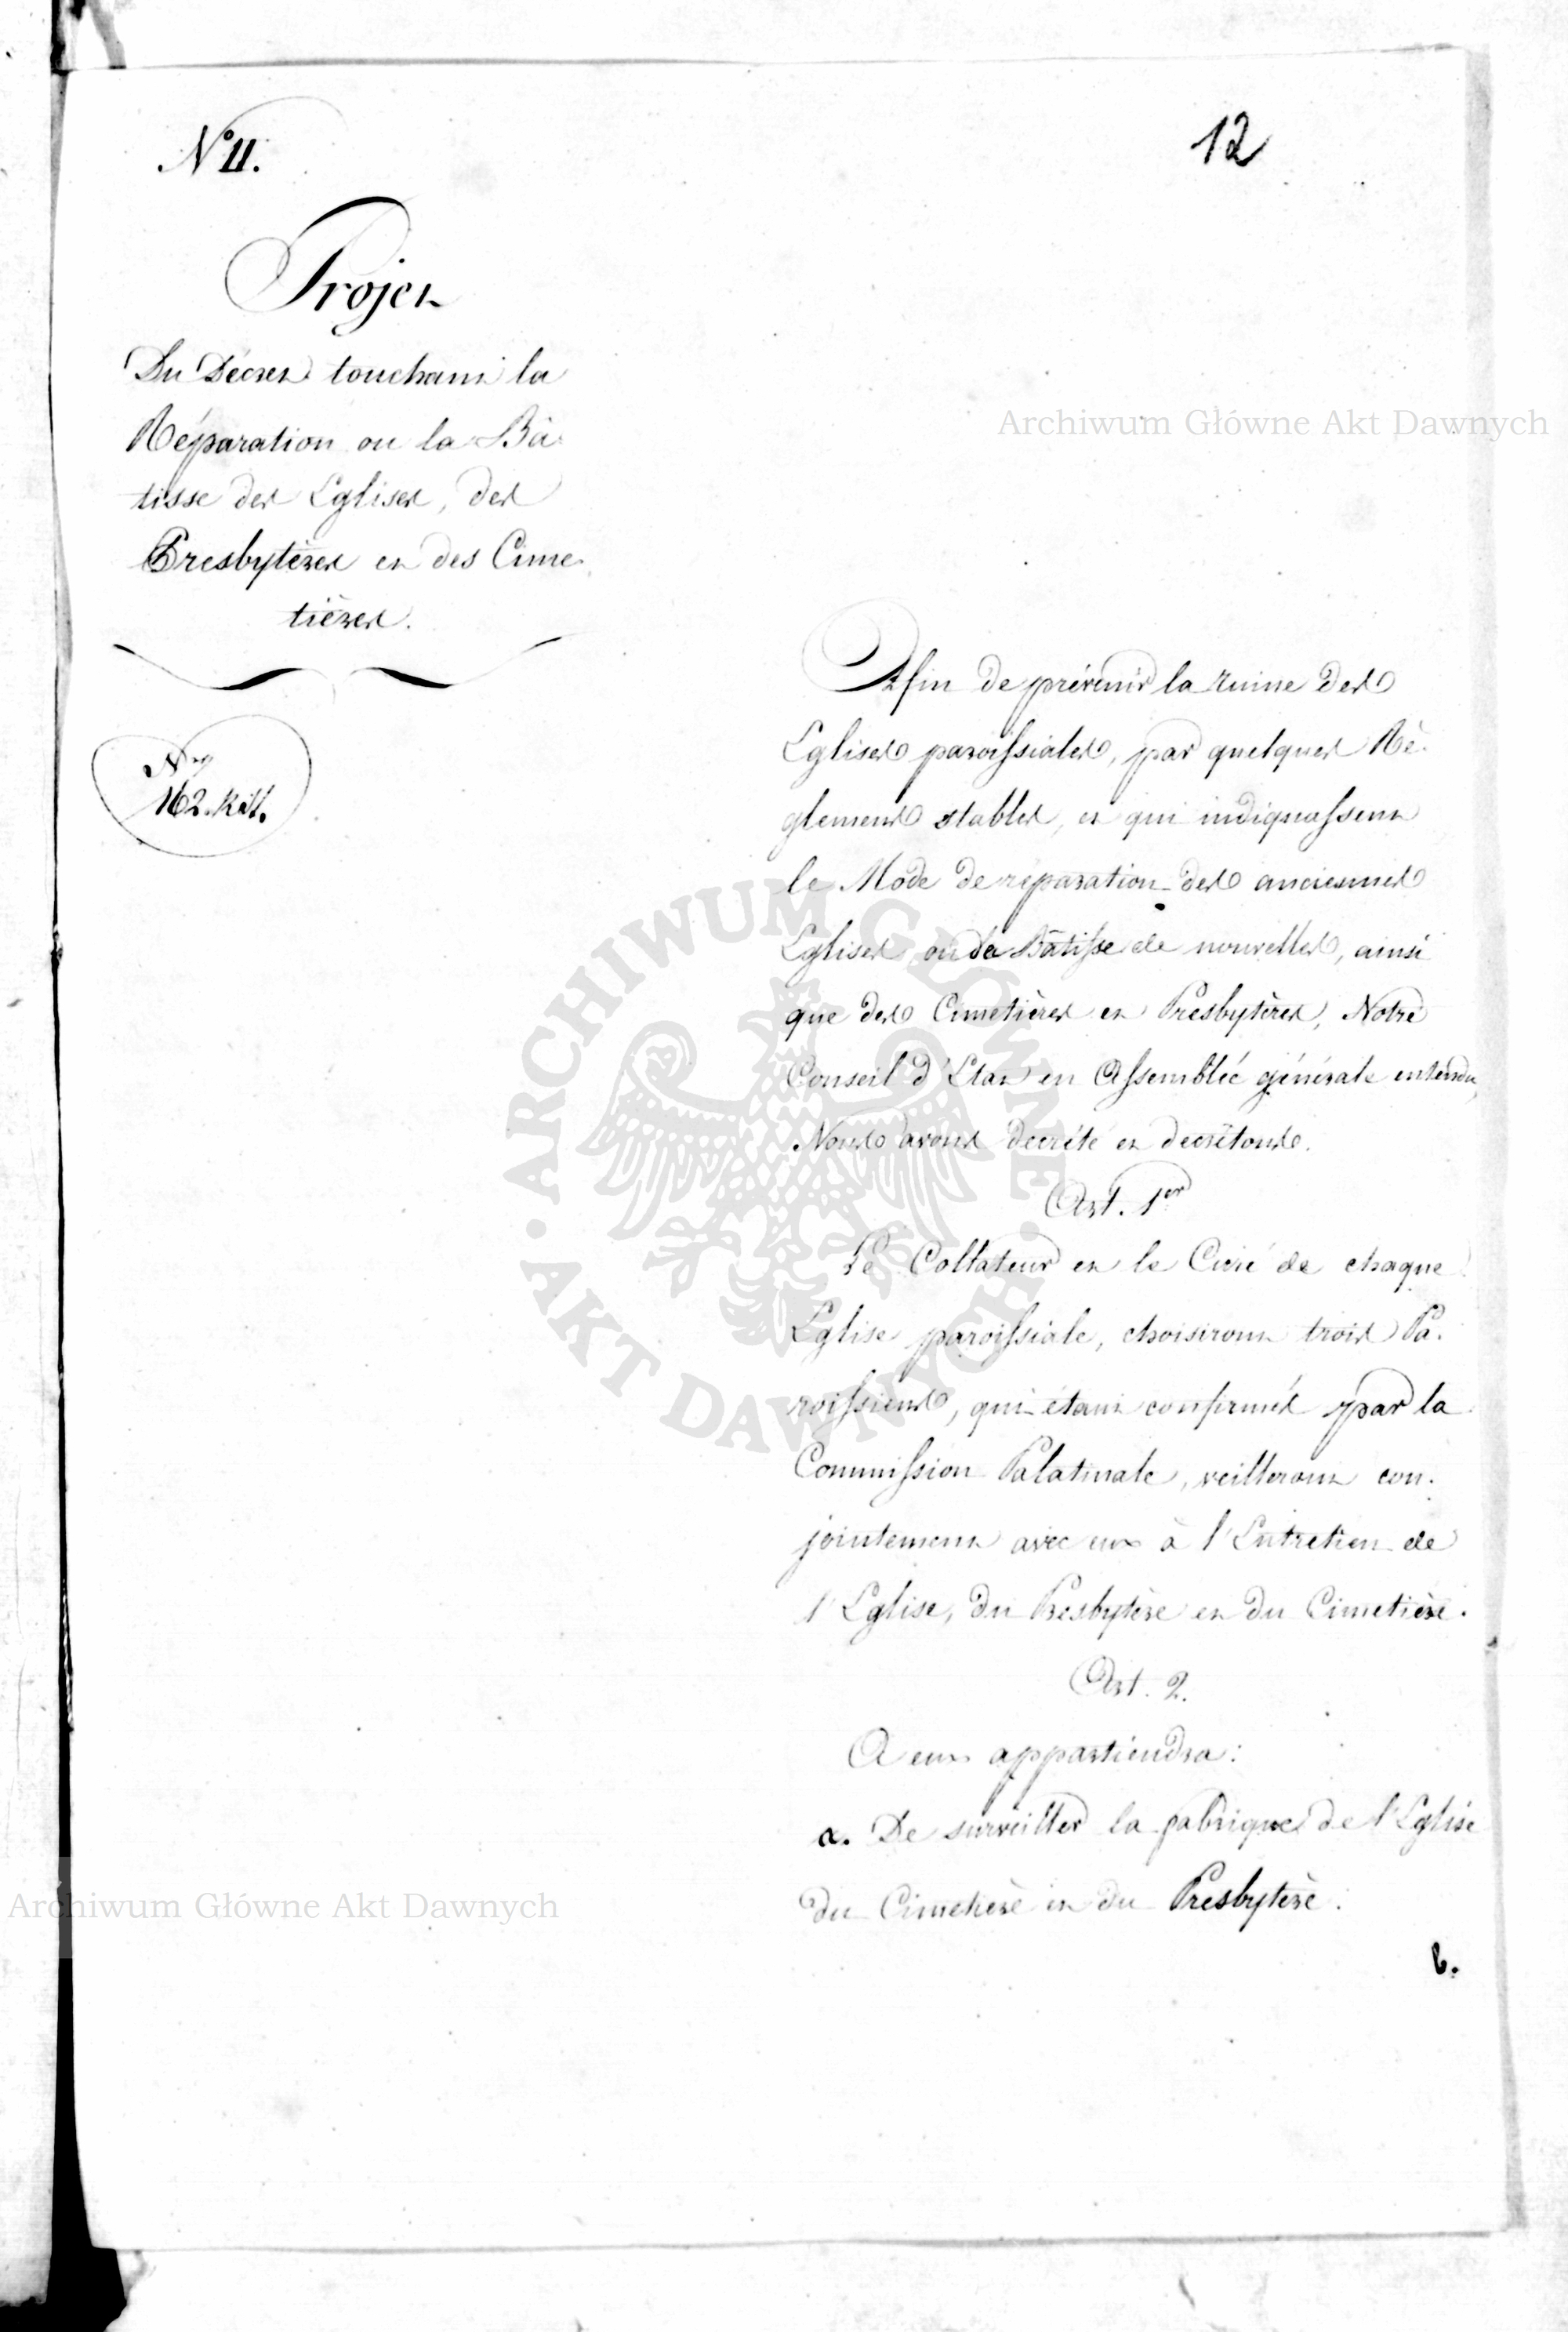 N° II.
12
Projet
Du Décret touchant la
Réparation ou la Bâ-
tisse des Eglises, des
Presbytères et des Cime-
tières.
162.
Afin de prévenir la ruine des
Eglises paroissiales, par quelques Ré-
glements stables, et qui indiquassent
le Mode de réparation des anciennes
Eglises ou la Bâtisse de nouvelles, ainsi
que des Cimetières et Presbytères, Notre
Conseil d'Etat en Assemblée générale entendu,
Nous avons decrété et decrétons.
Art. 1er
Le Collateur et le Curé de chaque
Eglise paroissiale, choisiront trois Pa-
roissiens, qui étant confirmés par la
Commission Palatinale, veilleront con-
jointement avec eux à l'Entretien de
l'Eglise, du Presbytère et du Cimetière.
Art. 2.
A eux appartiendra:
a. De surveiller la fabrique de l'Eglise
du Cimetière et du Presbytère.
b.
Archiwum Główne Akt Dawnych
Archiwum Główne Akt Dawnych
ARCHIWUM GŁÓWNE
AKT DAWNYCH